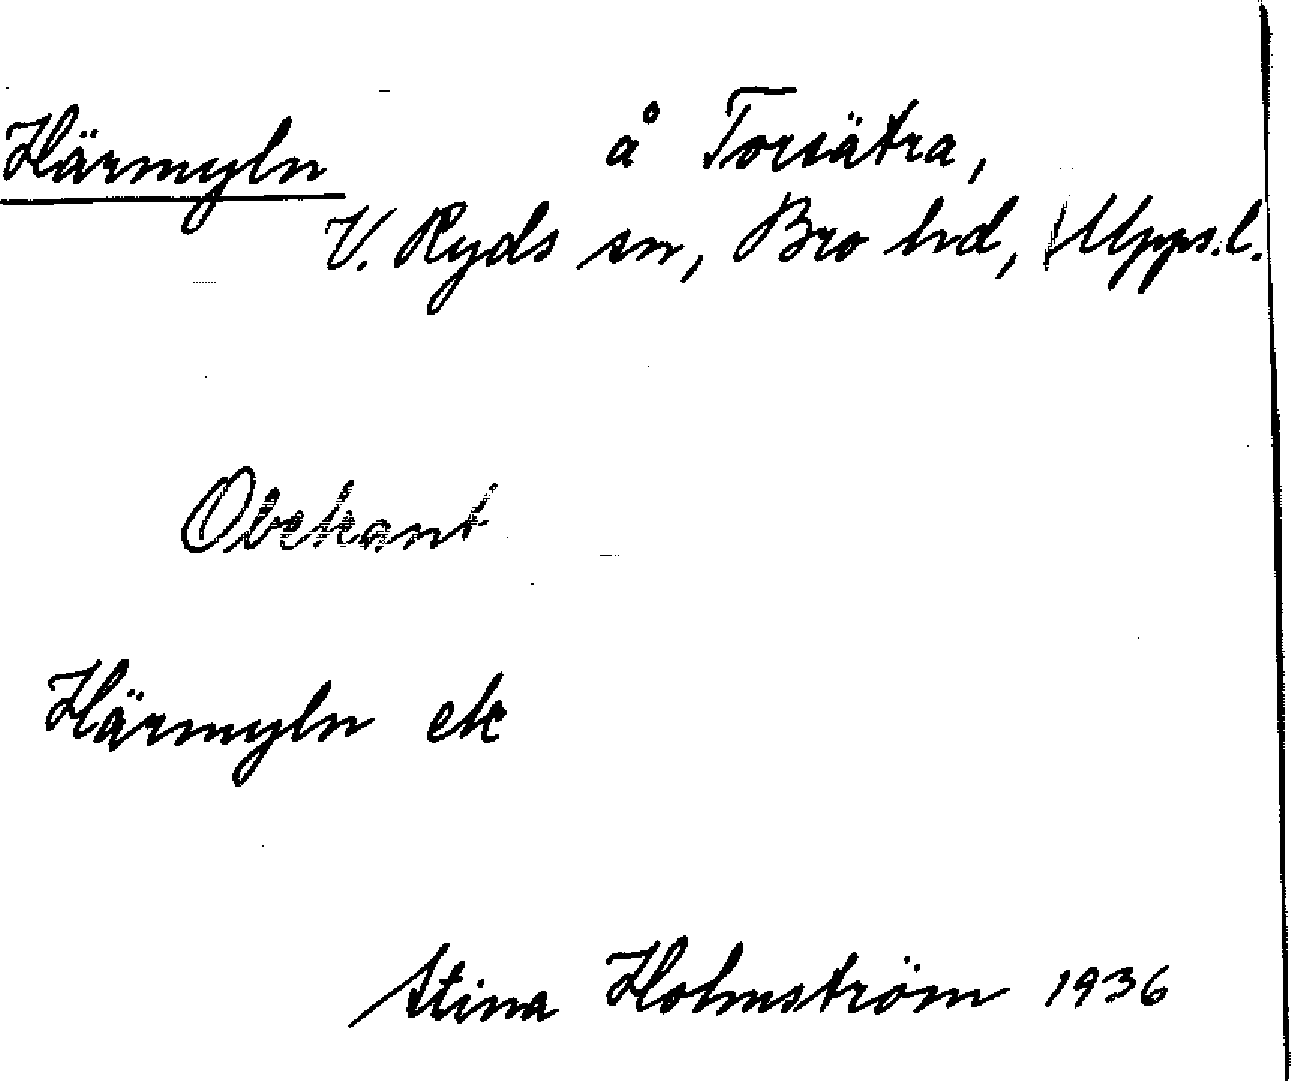 Härmyln å Torsätra,
V. Ryds sn, Bro hd, Upps.l.
Obekant
Härmyln ek
Stina Holmström 1936